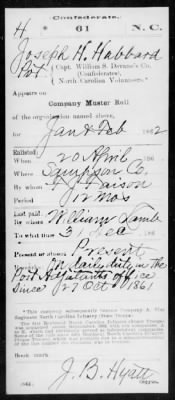 Confederate.
H 61 N. C.
Joseph H. Hubbard
Pvt., Capt. William S. Devane's Co.
(Confederates)
North Carolina Volunteers.*
Appears on
Company Muster Roll
of the organization named above,
for Jan & Feb, 1862
Enlisted:
When 20 April, 186
Where Sampson Co.
By whom Faison
Period 12 mos
Last paid:
By whom William Lamb
To what time 31 Dec, 186
Present or absent Present
Remarks: daily duty in the
Post Adjutants office
Since 27 Oct 1861
*This company subsequently became Company A, 61st
Regiment North Carolina Infantry (State Troops).
Book mark:
J. B. Hyatt
(642) Copyist.